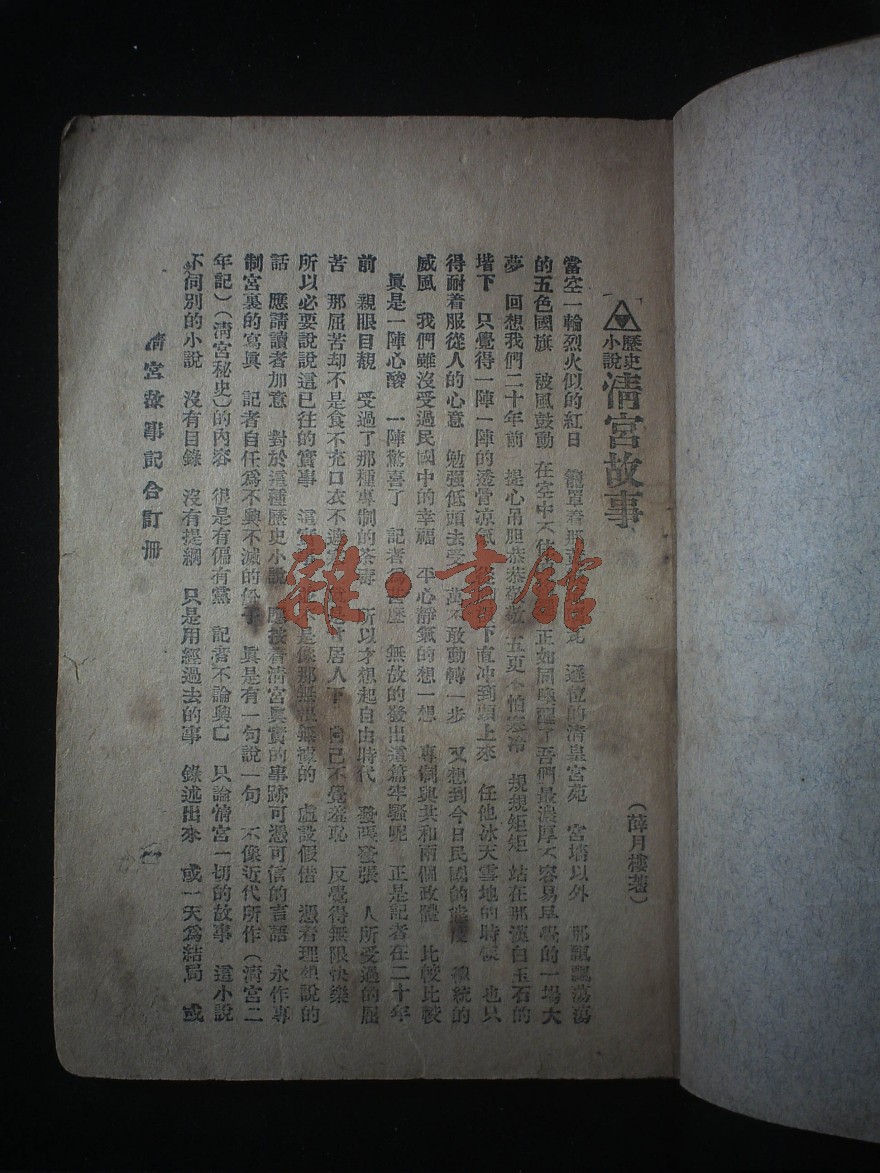 歷史小說 清宮故事
（薛月樓著）
當空一輪烈火似的紅日 籠罩着那 遜位的清皇宮苑 宮墻以外 那飄飄蕩蕩
的五色國旗 被風鼓動 在空中不住 正如同喚醒了吾們最濃厚不容易早覺的一場大
夢 回想我們二十年前 提心吊胆恭恭敬敬 五更 怕寒冷 規規矩矩 站在那漢白玉石的
堦下 只覺得一陣一陣的透骨涼氣 下直冲到頭上來 任他冰天雪地的時候 也只
得耐着服從人的心意 勉强低頭去受 萬不敢動轉一步 又想到今日民國的態度 總統的
威風 我們雖沒受過民國中的幸福 平心靜氣的想一想 專制與共和兩個政體 比較比較
眞是一陣心酸 一陣驚喜了 記者爲甚麽 無故的發出這篇牢騷呢 正是記者在二十年
前 親眼目覩 受過了那種專制的荼毒 所以才想起自由時代 發張發張 人所受過的屈
苦 那屈苦却不是食不充口衣不遮 居人下 自己不覺羞恥 反覺得無限快樂
所以必要說說這已往的實事 這 是像那無根無據的 虛設假借 憑着理想說的
話 應請讀者加意 對於這種歷史小說 應按着清宮眞實的事跡可憑可信的言語 永作專
制宮裏的寫眞 記者自任爲不興不滅的份子 眞是有一句說一句 不像近代所作（清宮二
年記）（清宮秘史）的內容 很是有偏有黨 記者不論興亡 只論情宮一切的故事 這小說
不同別的小說 沒有目錄 沒有提綱 只是用經過去的事 錄述出來 或一天爲結局 或
清宮故事記合訂册
一
雜·書館